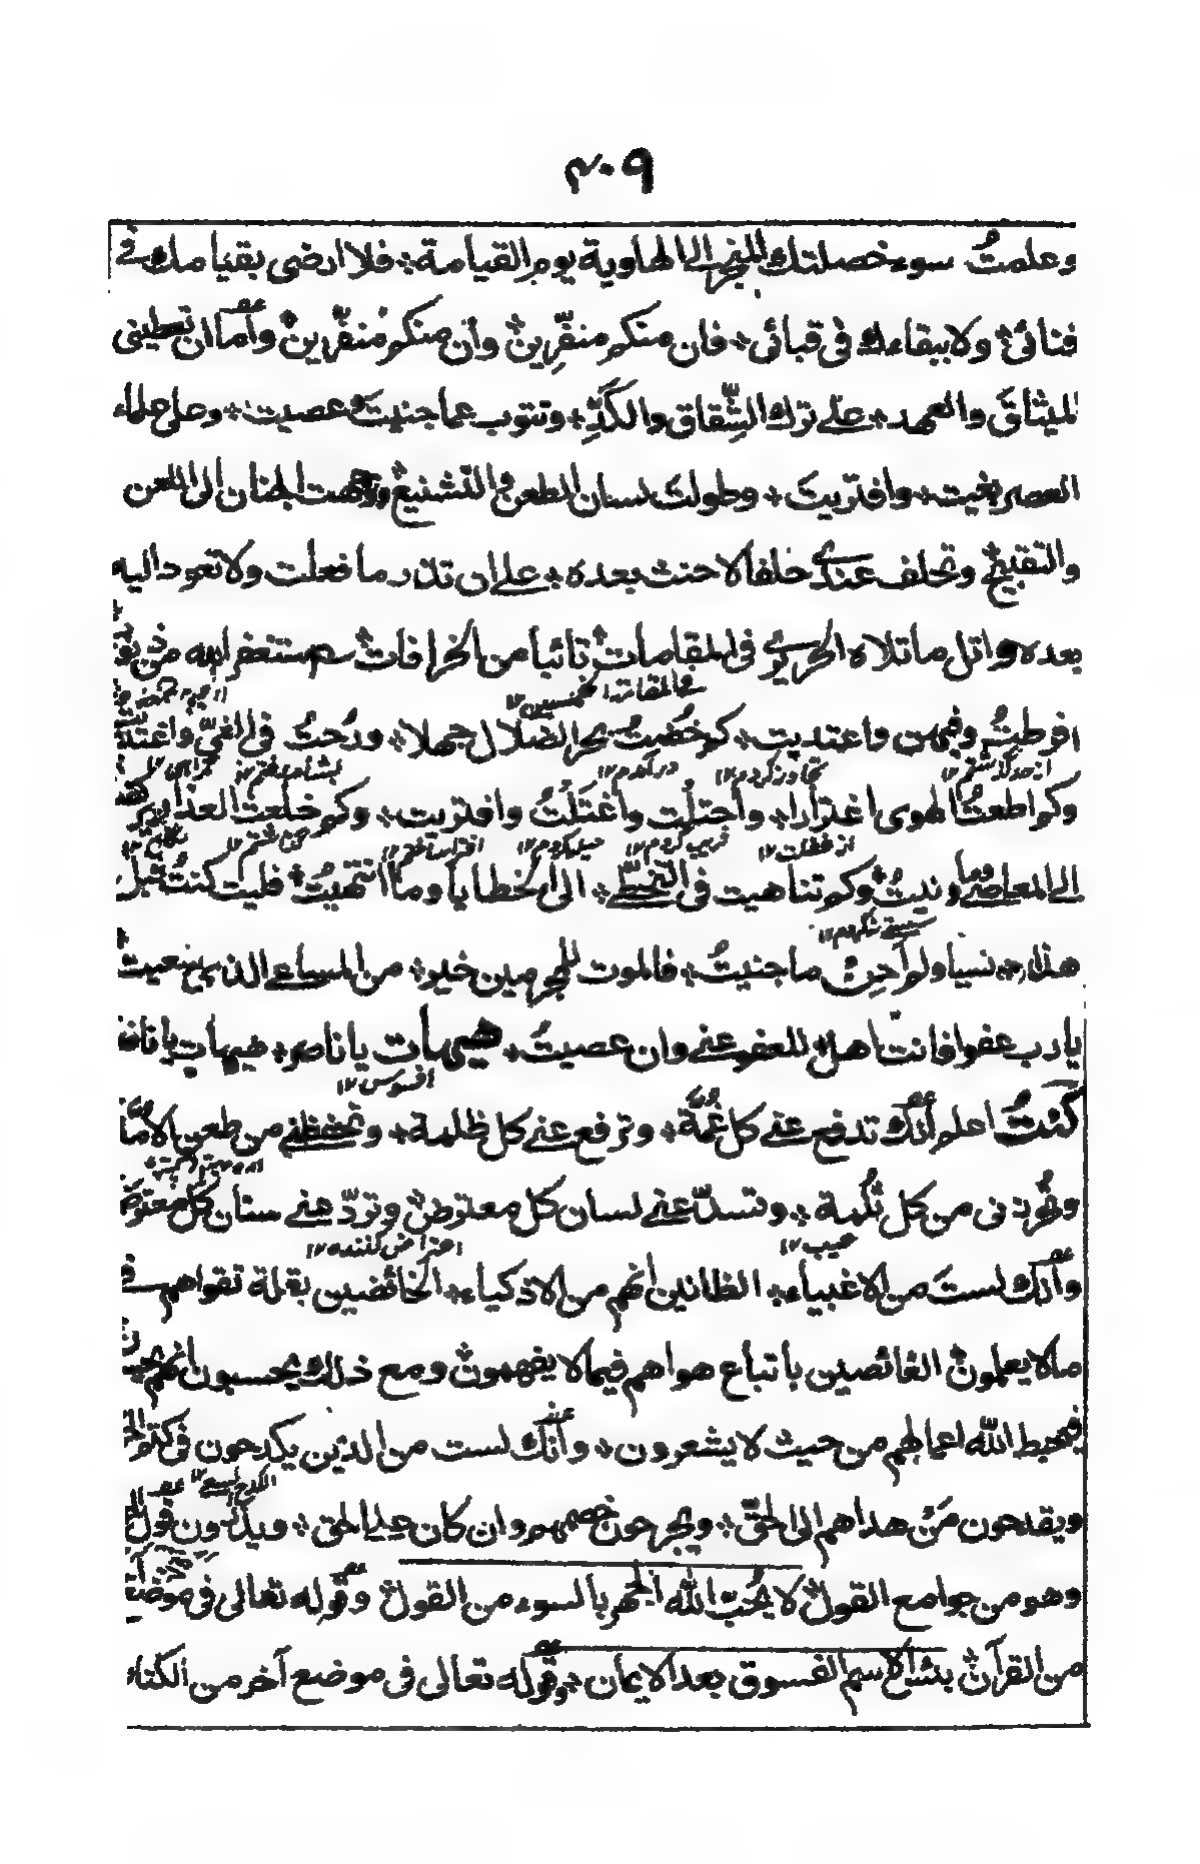 ٢٠٩
وعلمتُ سوء خصلتك المنجر الى الهاوية يوم القيامة ٭ فلا ارضى بقيامك فى
فنائى ٭ ولا ببقاءك فى قبائى ٭ فان منكم منفّرين ٭ وان منكم منفّرين ٭ واما ان تعطينى
الميثاق والعهد ٭ على ترك الشِّقاق والكدِّ ٭ وتتوب عما جنيت وعصيت ٭ وعلى علماء
العصر بغيت ٭ وافتريت ٭ وطولت لسان الطعن والتشنيع ٭ ووجهت الجنان الى اللعن
والتقبيح ٭ وتحلف عندى حلفا لا حنث بعده ٭ على ان تذر ما فعلت ولا تعود اليه
بعده ٭ واتل ما تلاه الحريرى فى المقامات ٭ تائبا من الخرافات ٭ استغفر الله من ذنوب
فى المقامة الخمسين ١٢
افرطتُ فيهن واعتديت ٭ كم خُضتُ بحر الضلال جهلا ٭ ورُحتُ فى الغىّ واغتديت
از حد گذشتم ١٢ تجاوز کردم ١٢ در آمدم ١٢
وكم اطعتُ الهوى اغترارا ٭ واحتلْت واغتَلْتُ وافتريت ٭ وكم خلعت العذار
از غفلت ١٢ فریب کردم ١٢ حیله کردم ١٢
الى المعاصى وما ونيتُ ٭ وكم تناهيت فى التخطّى ٭ الى الخطايا وما انتهيتُ ٭ فليت كنت قبل
سستى نکردم ١٢
هذا ٭ نسيا ولم أجنِ ما جنيتُ ٭ فالموت للمجرمين خير ٭ من المساعى الذى سعيت
يا رب عفوا فانت اهل ٭ للعفو عنى وان عصيتُ ٭ هيهات يا ناصر ٭ هيهات يا
افسوس ١٢
كنتُ اعلم أنك تدفع عنى كل غُمّة ٭ وترفع عنى كل ظلمة ٭ وتحفظنى من طعن
من كل ثُلمة ٭ وتسدّ عنى لسان كل معترض ٭ وتردّ عنى سنان كل معترض
عیب ١٢ اعتراض کننده ١٢
وأنك لست من الاغبياء ٭ الظانين انهم من الاذكياء ٭ الخائضين بقلة تقواهم فى
ما لا يعلمون ٭ الغائصين باتباع هواهم فيما لا يفهمون ٭ ومع ذلك يحسبون انهم
فيحبط الله اعمالهم من حيث لا يشعرون ٭ وأنك لست من الذين يكدحون فى
ويقدحون مَن هداهم الى الحقّ ٭ ويجرحون خصمهم وان كان على الحق ٭ ويذرون قول
وهو من جوامع القول ٭ لا يُحب الله الجهر بالسوء من القول ٭ وقوله تعالى فى موضع
من القرآن ٭ بئس الاسم الفسوق بعد الايمان ٭ وقوله تعالى فى موضع آخر من الكتاب